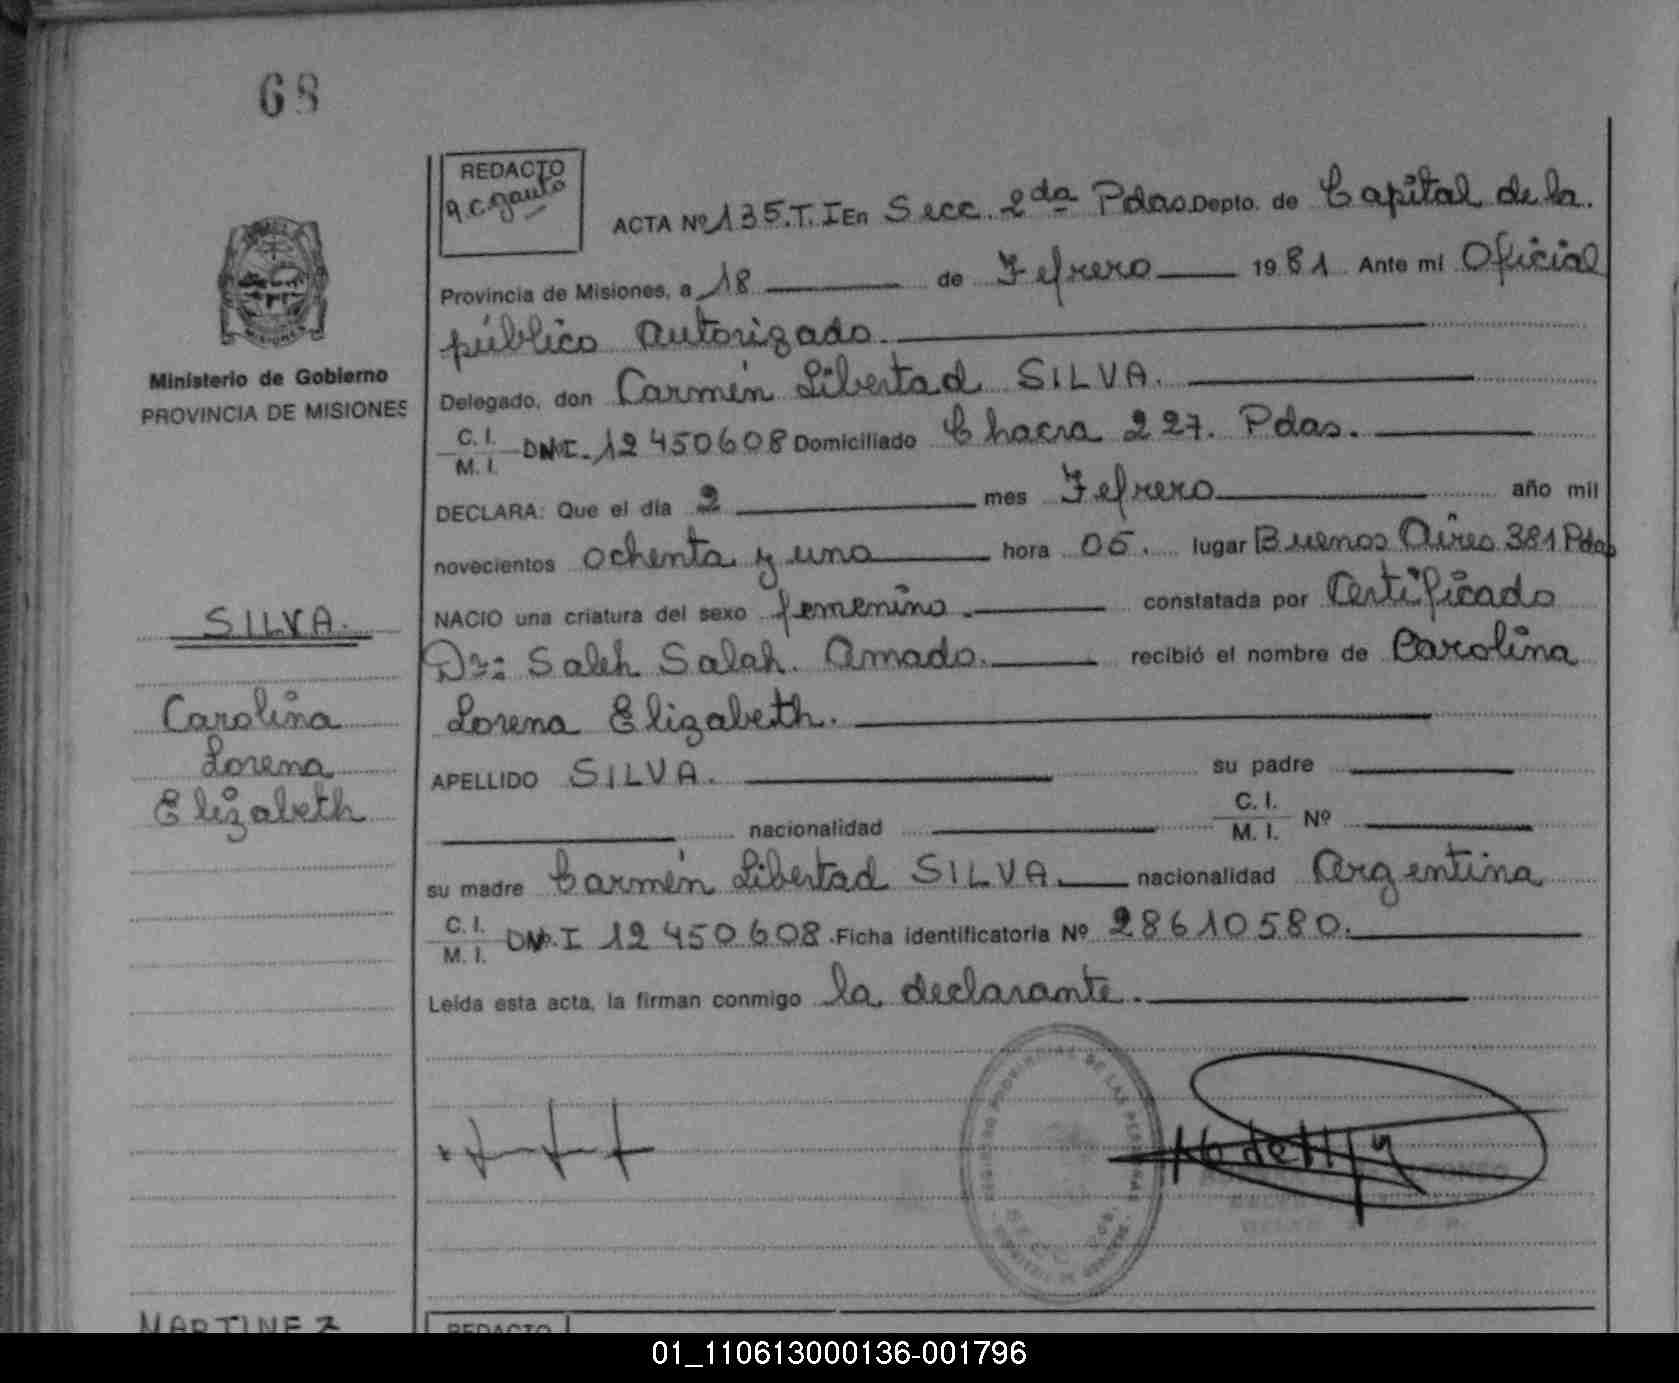 68
REDACTO
ACTA Nº 135.T.I En Secc. 2da Pdas. Depto. de Capital de la.
Provincia de Misiones, a 18 de Fefrero 1981 Ante mi Oficial
público autorizado.
Ministerio de Gobierno
PROVINCIA DE MISIONES
Delegado, don Carmén Libertad SILVA.
C. I.
M. I. DNI. 12450608 Domiciliado Chacra 227. Pdas.
DECLARA: Que el día 2 mes Fefrero año mil
novecientos ochenta y uno hora 05. lugar Buenos Aires 381 Pdas
NACIO una criatura del sexo femenino. constatada por Certificado
Dr: Saleh Salah. Amado. recibió el nombre de Carolina
Lorena Elizabeth.
SILVA.
Carolina
Lorena
Elizabeth
APELLIDO SILVA. su padre
nacionalidad C. I.
M. I. Nº
su madre Carmén Libertad SILVA. nacionalidad Argentina
C. I.
M. I. DN.I 12450608. Ficha identificatoria Nº 28610580.
Leída esta acta, la firman conmigo la declarante.
REGISTRO PROVINCIAL DE LAS PERSONAS
MARTINEZ
REDACTO
01_110613000136-001796